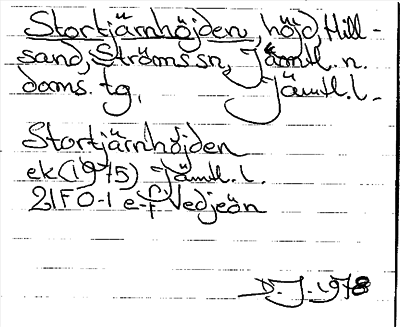 Stortjärnhöjden, höjd, Hill-
sand, Ströms sn, Jämtl. n.
doms. tg, Jämtl. l.
Stortjärnhöjden
ek (1975) Jämtl. l.
21F 0-1 e-f Vedjeön
D. J. 1978